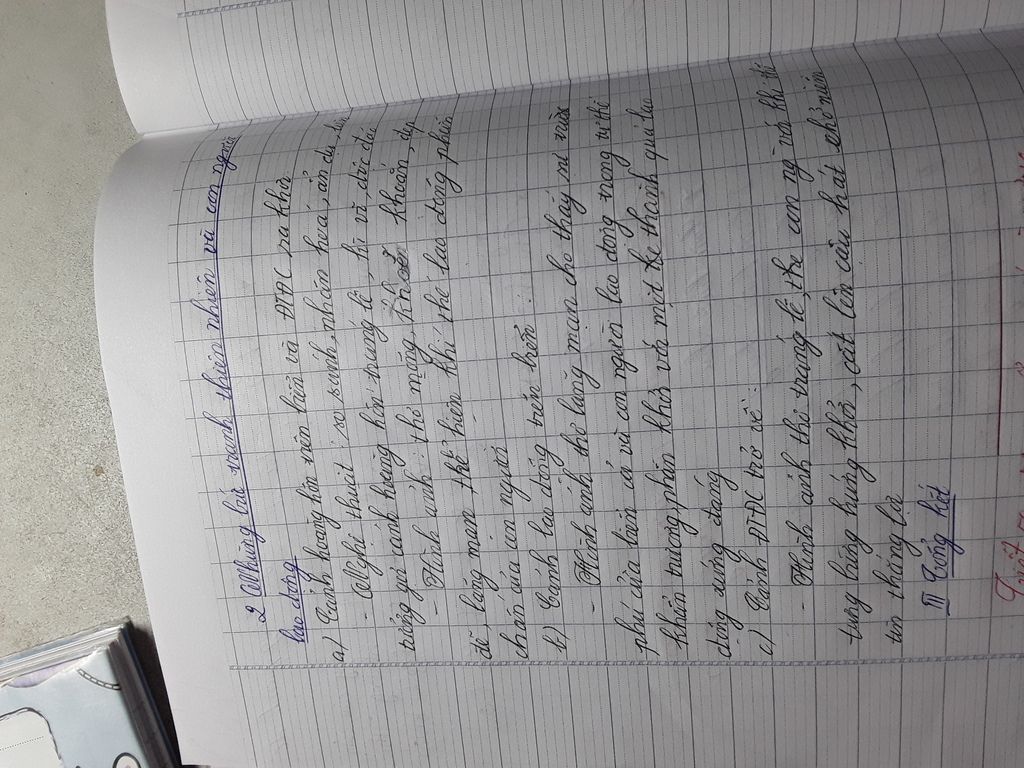 2 Những bức tranh thiên nhiên và con người
lao động
a) Cảnh hoàng hôn trên biển và ĐTĐC ra khơi
- Nghệ thuật so sánh, nhân hoá, ẩn dụ
tưởng gợi cảnh hoàng hôn tráng lệ, kì vĩ
- Hình ảnh thơ khoắn, đẹp
đẽ, lãng mạn thể hiện khí thế lao động phấn
chấn của con người
b) Cảnh lao động trên biển:
- Hình ảnh thơ lãng mạn cho thấy sự
phú của biển cả và con người lao động trong tư thế
khẩn trương, phấn khởi với một kế thành quả lao
động xứng đáng
c) Cảnh ĐTĐC trở về:
- Hình ảnh thơ tráng lệ, thể con ng với khí thế
tưng bừng hứng khởi, cất lên câu hát chở niềm
tin thắng lợi
III Tổng kết